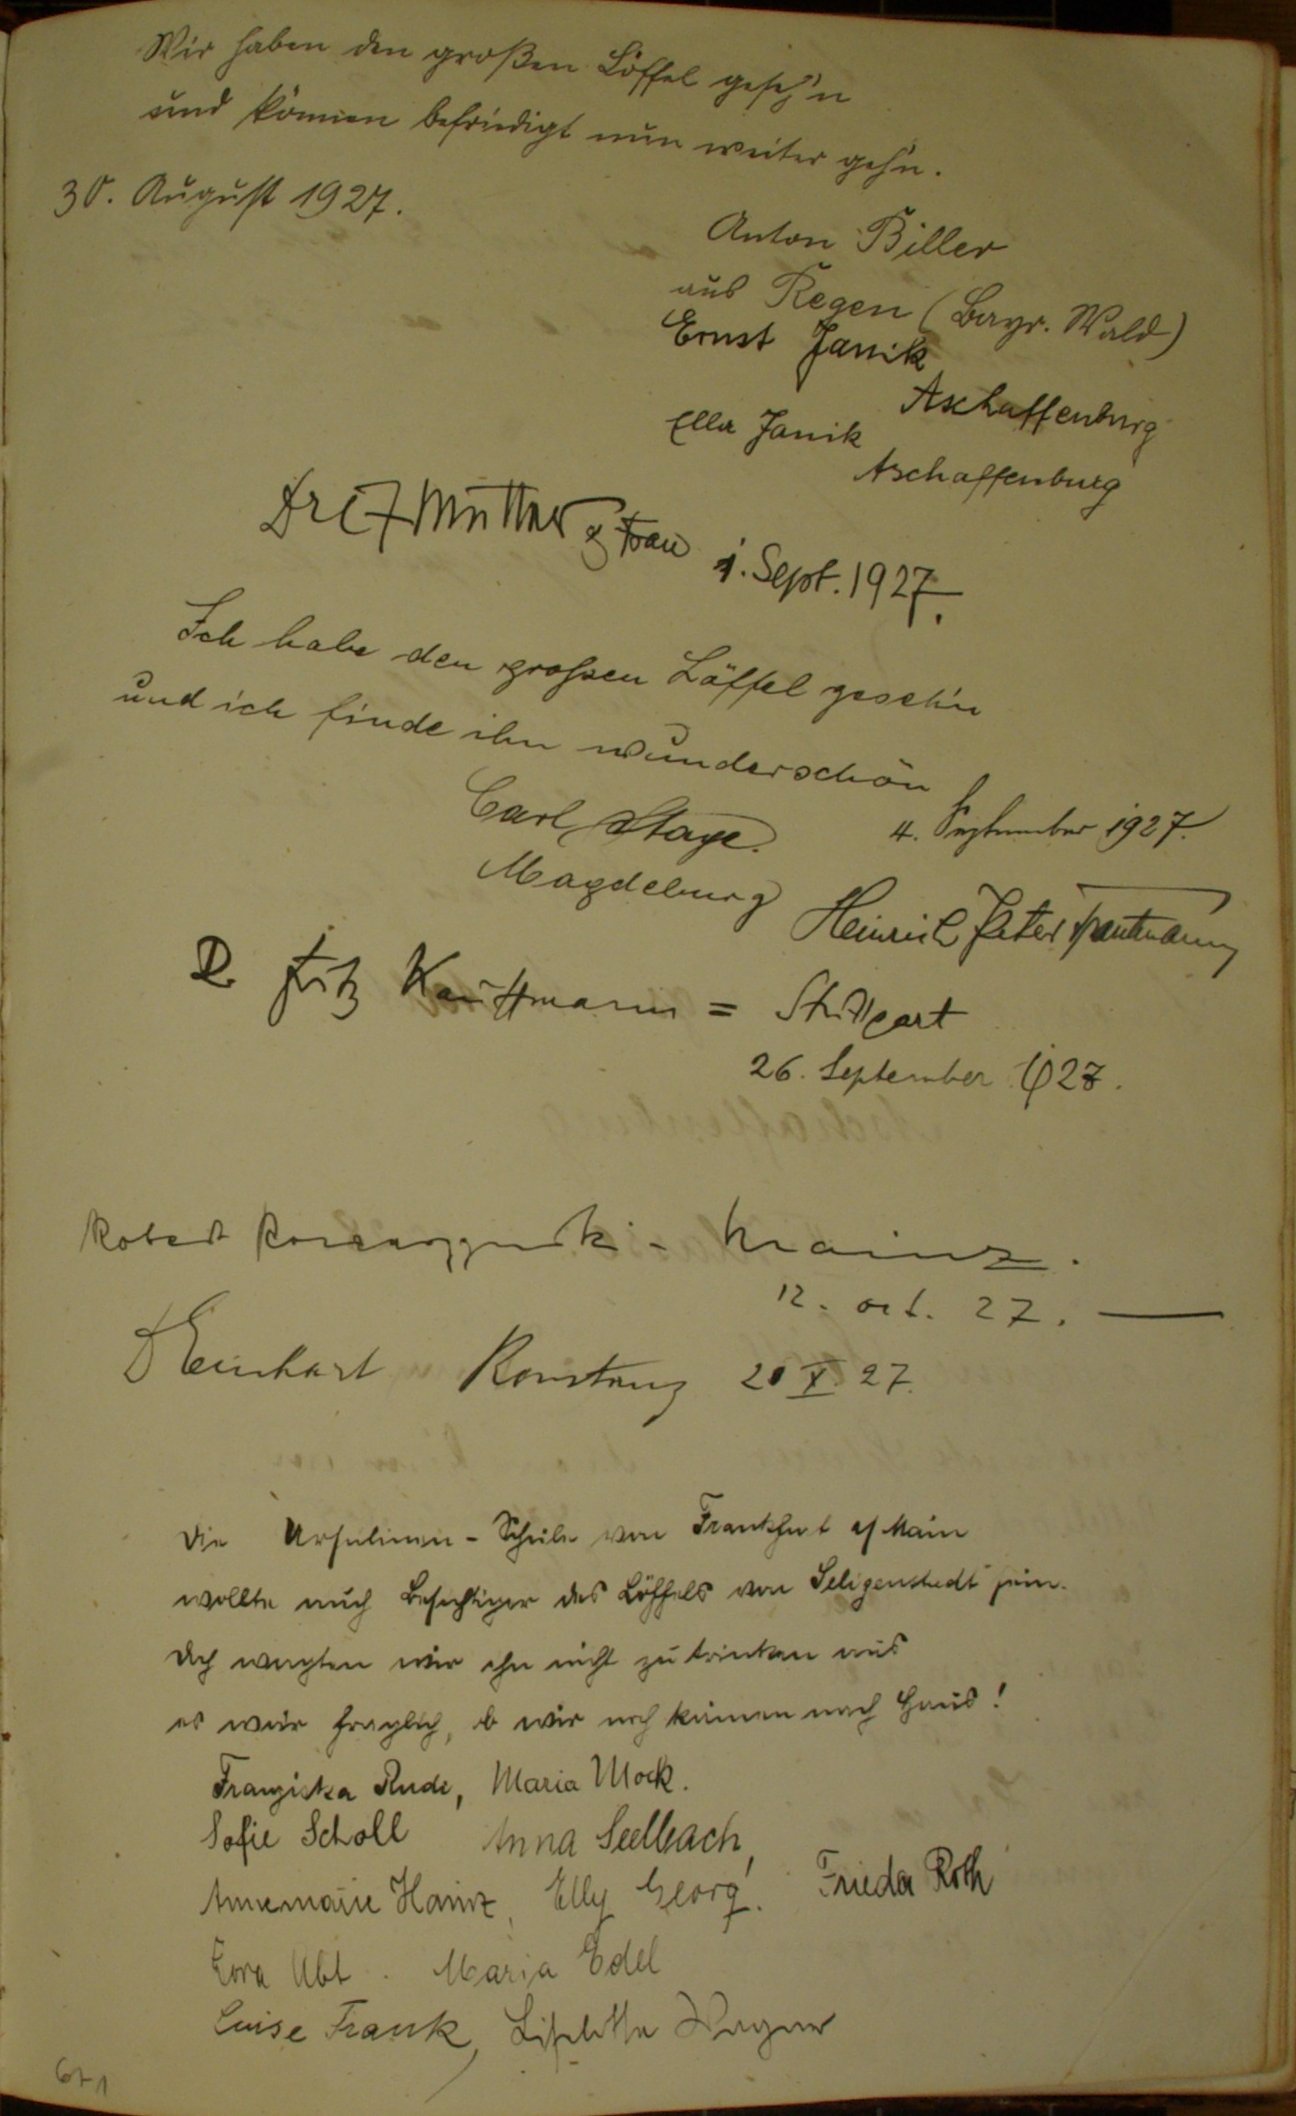 Wir haben den großen Löffel geseh'n
und können befriedigt nun weiter geh'n.
30. August 1927.
Anton Biller
aus Regen (Bayr. Wald)
Ernst Janik
Aschaffenburg
Ella Janik
Aschaffenburg
& Frau 1. Sept. 1927.
Ich habe den grossen Löffel geseh'n
und ich finde ihn wunderschön
Carl Stage. 4. September 1927.
Magdeburg
Heinrich Peter
Fritz Kauffmann = Stuttgart
26. September 1927.
Robert - Mainz.
12. oct. 27.
Konstanz 20 X. 27.
Die Ursulinen-Schule von Frankfurt a/Main
wollte auch Besichtiger des Löffels von Seligenstadt sein.
Doch wagten wir ihn nicht zu trinken aus
es wär fraglich, ob wir noch kämen nach Haus!
Franziska Rude, Maria Mock.
Sofie Scholl Anna Seelbach,
Annemarie Hainz, Elly Georg. Frieda Roth
Lora Abt. Maria Edel
Luise Frank, Liselotte Wagner